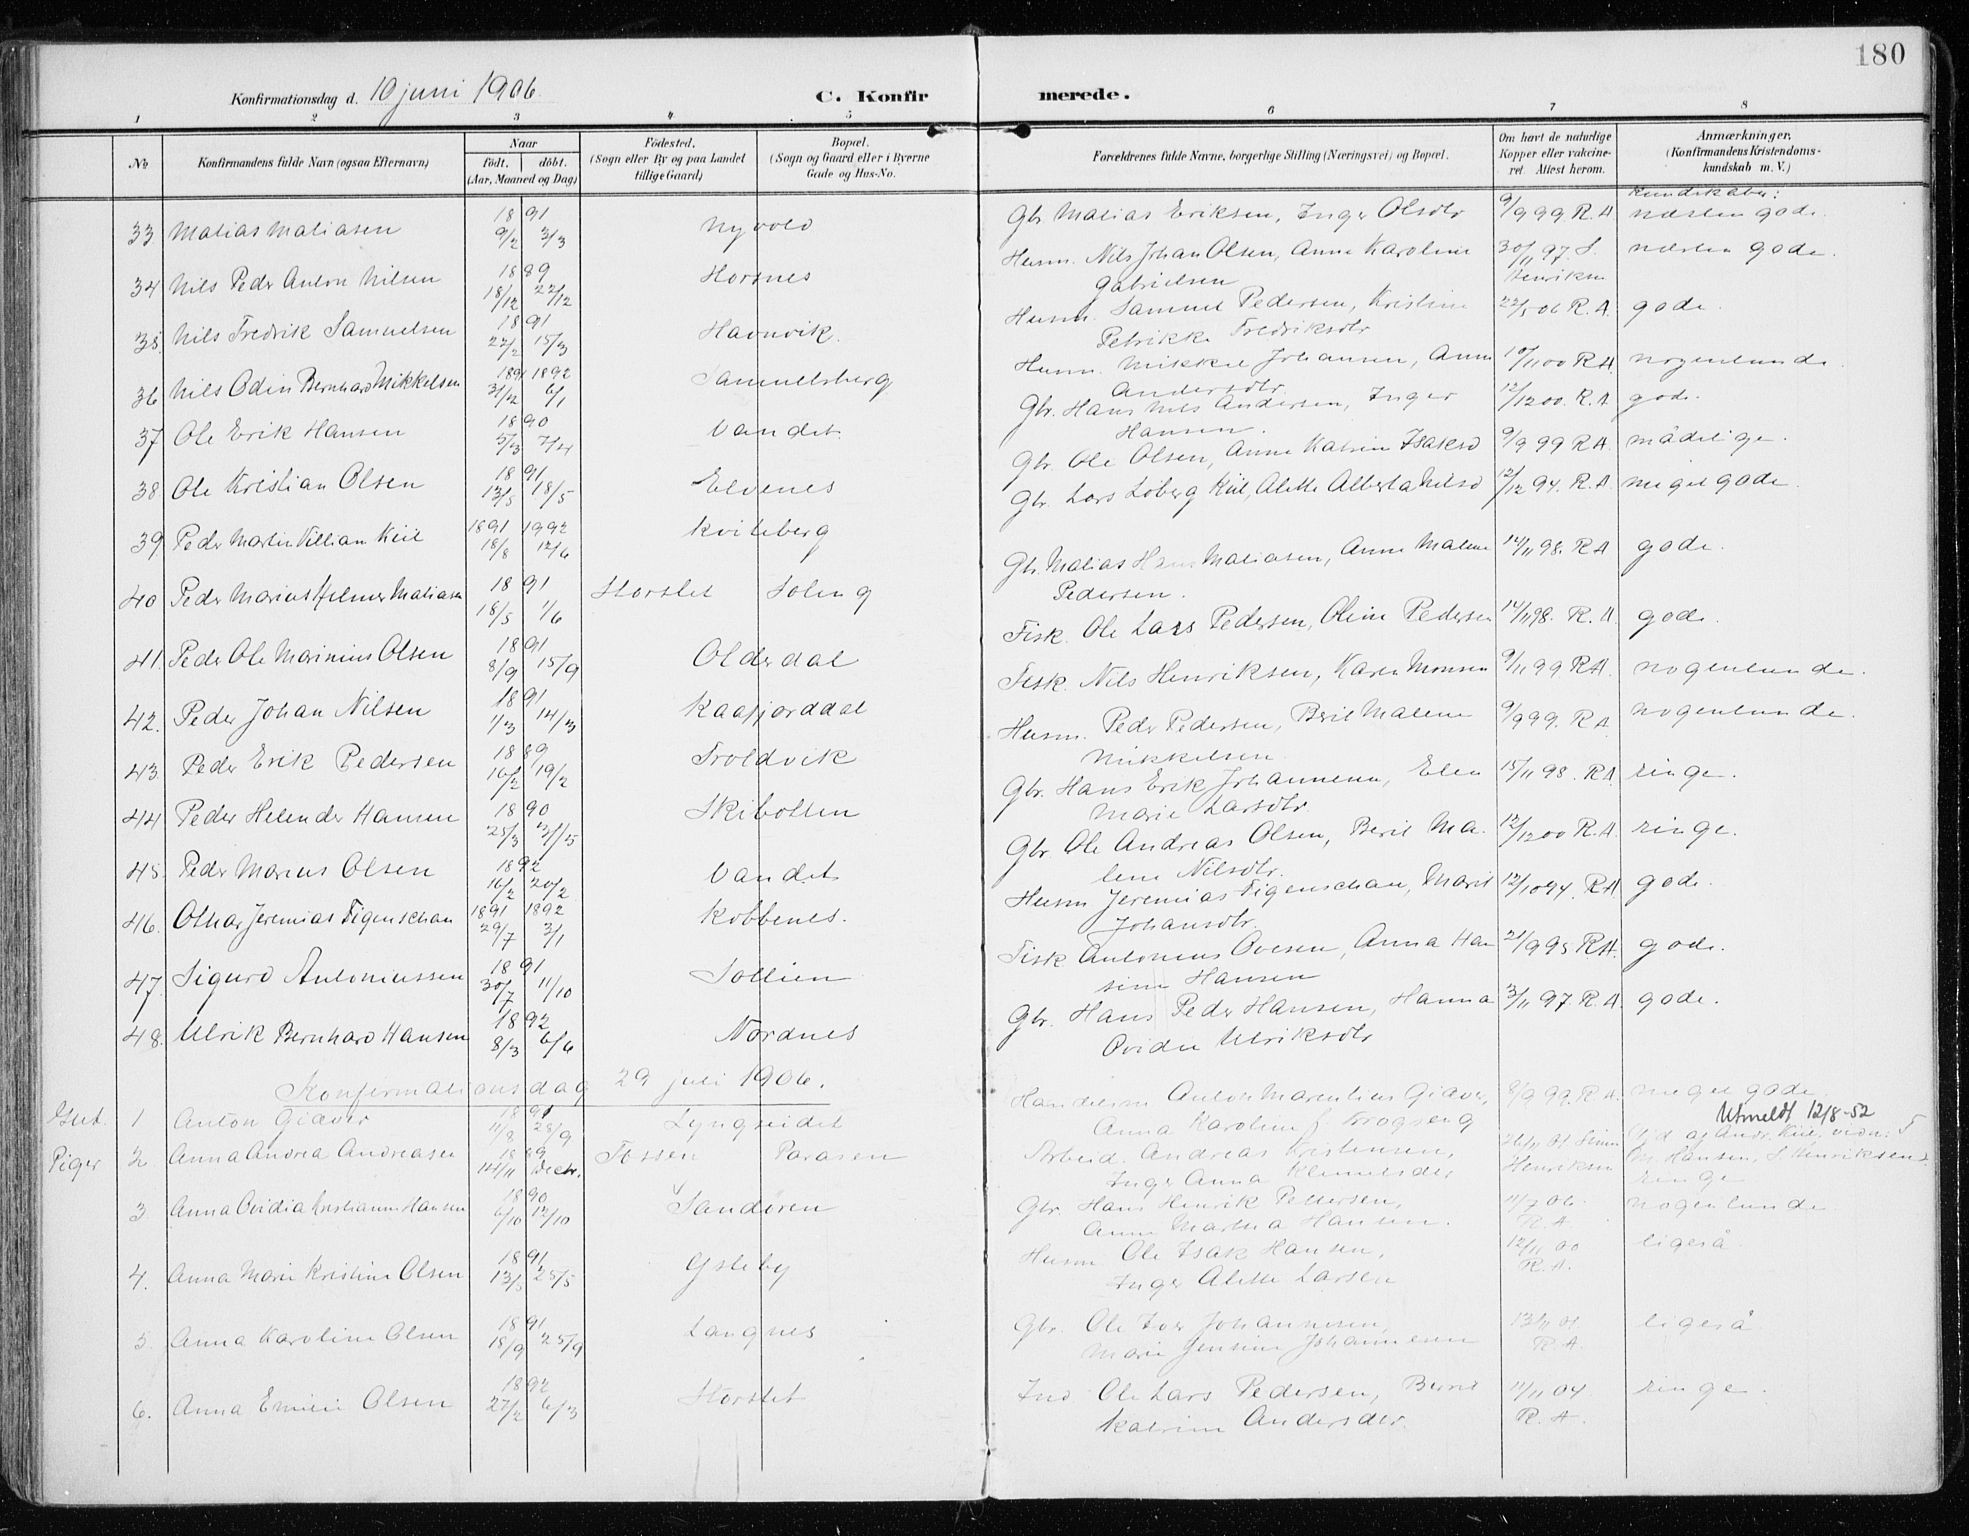 180
Konfirmationsdag d. 10 juni 1906. C. Konfirmerede.
1 2 3 4 5 6 7 8
№ Konfirmandens fulde Navn (ogsaa Efternavn)
Naar
födt. döbt.
(Aar, Maaned og Dag)
Födested.
(Sogn eller By og paa Landet
tillige Gaard)
Bopæl.
(Sogn og Gaard eller i Byerne
Gade og Hus-No.
Forældrenes fulde Navne, borgerlige Stilling (Næringsvei) og Bopæl.
Om havt de naturlige
Kopper eller vakcine-
ret. Attest herom.
Anmærkninger,
(Konfirmandens Kristendoms-
kundskab m. V.)
Kundskaber:
33 Matias Matiasen 1891 9/2 3/3 Nyvold Gbr Matias Eriksen, Inger Olsdtr 9/9 99 R. A næsten gode.
34 Nils Peder Anton Nilsen 1889 18/12 22/12 Horsnes Husm. Nils Johan Olsen, Anne Karoline 30/11 97. S. næsten gode.
Gabrielsen Henriksen
35. Nils Fredrik Samuelsen 1891 22/2 15/3 Havnvik. Husm. Samuel Pedersen, Kristine 22/5 06 R. A. gode.
Petrikke Fredriksdtr
36 Nils Odin Bernhard Mikkelsen 1891 1892 31/12 6/1 Samuelsberg Husm. Mikkel Johansen, Anne 10/11 00 R.A. nogenlunde
Andersdtr
37 Ole Erik Hansen 1890 5/3 7/4 Vandet Gbr. Hans Nils Andersen, Inger 12/12 00. R. A gode.
Hansen.
38 Ole Kristian Olsen 1891 13/5 18/5 Elvenes Gbr. Ole Olsen, Anne Katrine Isaksd 9/9 99 R A. mådelige.
39 Peder Martin Villian Kiil 1891 1992 18/8 12/6 Kviteberg Gbr. Lars Loberg Kiil, Alette Alberta Nilsd 12/12 94. R. A. meget gode.
40 Peder Marius Hilmer Matiasen 1891 18/5 1/6 Storslet Soleng Gbr. Matias Hans Matiasen, Anne Malene 14/11 98. R A gode.
Pedersen.
41. Peder Ole Marinius Olsen 1891 8/9 15/9 Olderdal Fisk. Ole Lars Pedersen, Oline Pedersen 14/11 98. R. A. gode.
42. Peder Johan Nilsen 1891 1/3 14/3 Kaafjorddal Fisk. Nils Henriksen, Karen Monsen 9/11 99 R A. nogenlunde.
43. Peder Erik Pedersen 1889 16/2 19/2 Troldvik Husm. Peder Pedersen, Beril Malene 9/9 99. R A. nogenlunde.
Mikkelsen.
44 Peder Helender Hansen 1890 25/3 Skibotten Gbr. Hans Erik Johannesen, Elen 15/11 98. R A. ringe.
Marie Larsdtr
45. Peder Marius Olsen 1892 16/2 20/2 Vandet Gbr. Ole Andreas Olsen, Beril Ma- 12/12 00 R. A. ringe.
lene Nilsdtr.
46. Othar Jeremias Figenschau 1891 1892 29/7 3/1 Kobbenes. Husm Jeremias Figenschau, Marit 12/10 94. R A gode.
Johansdtr.
47. Sigurd Antoniussen 1891 30/7 11/10 Sollien Fisk Antonius Ovesen, Anna Han 21/9 95 R A. gode.
sine Hansen
48. Ulrik Bernhard Hansen 1892 8/3 6/6 Nordnes Gbr. Hans Peder Hansen, Hanna 3/11 97. R. A. gode.
Ovidie Ulriksdtr
Konfirmationsdag 29 juli 1906.
Gut. 1 Anton Giæver 1891 11/8 28/9 Lyngseidet Handelsm Anton Marentius Giæver, 8/9 99. R A. meget gode
Anna Karoline f. Krogseng Utmeldt 12/8-52
Piger 2 Anna Andrea Andreasen 1889 14/11 Dectr. Tossen Parasen Arbeid. Andreas Kristensen, 26/11 01 Simon
Inger Anna Klemetsdtr Henriksen ringe
3. Anna Ovidia Kristianne Hansen 1890 6/10 12/10 Sandören Gbr Hans Henrik Pettersen, 11/7 06. nogenlunde
Anne Martha Hansen. R. A.
4. Anna Marie Kristine Olsen 1891 13/5 25/5 Ysteby Husm Ole Isak Hansen, 12/11 00 ligeså
Inger Alette Larsen R. A.
5. Anna Karoline Olsen 1891 18/9 25/9 Langnes Gbr. Ole Iver Johannesen, 13/11 01 ligeså
Marie Jensine Johannesen R. A.
6. Anna Emilie Olsen 1892 27/2 6/3 Storslet Ind Ole Lars Pedersen, Berit 11/11 04 ringe.
Katrine Andersdtr. R. A.